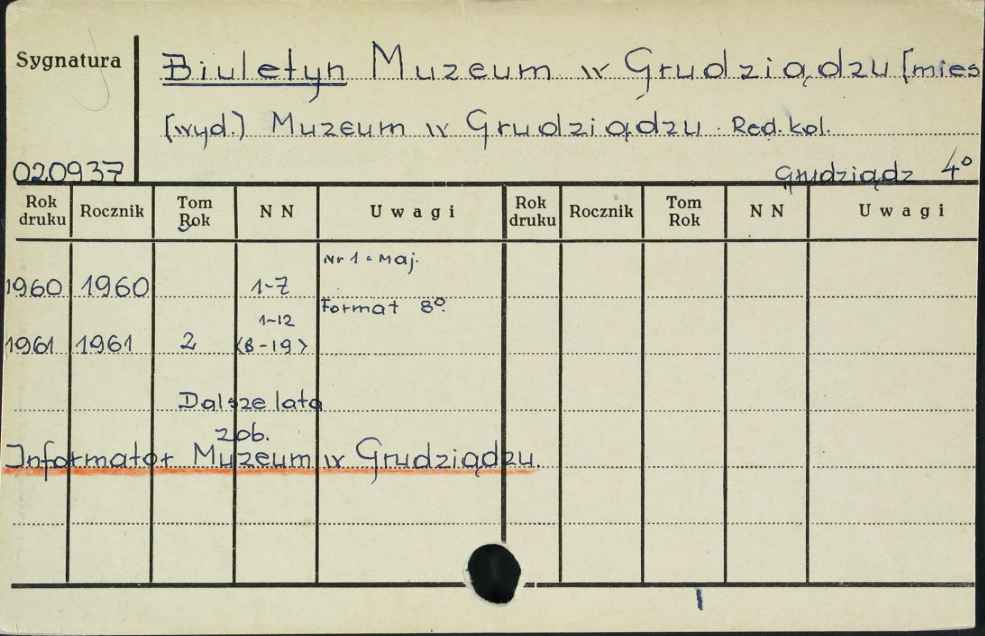 Sygnatura
Biuletyn Muzeum w Grudziądzu [mies
[wyd.] Muzeum w Grudziądzu. Red. kol.
020937
Grudziądz 4°
Rok druku Rocznik Tom Rok NN Uwagi Rok druku Rocznik Tom Rok NN Uwagi
Nr 1 = maj.
1960 1960 1-7
Format 8°.
1-12
1961 1961 2 <8-19>
Dalsze lata
zob.
Informator Muzeum w Grudziądzu.